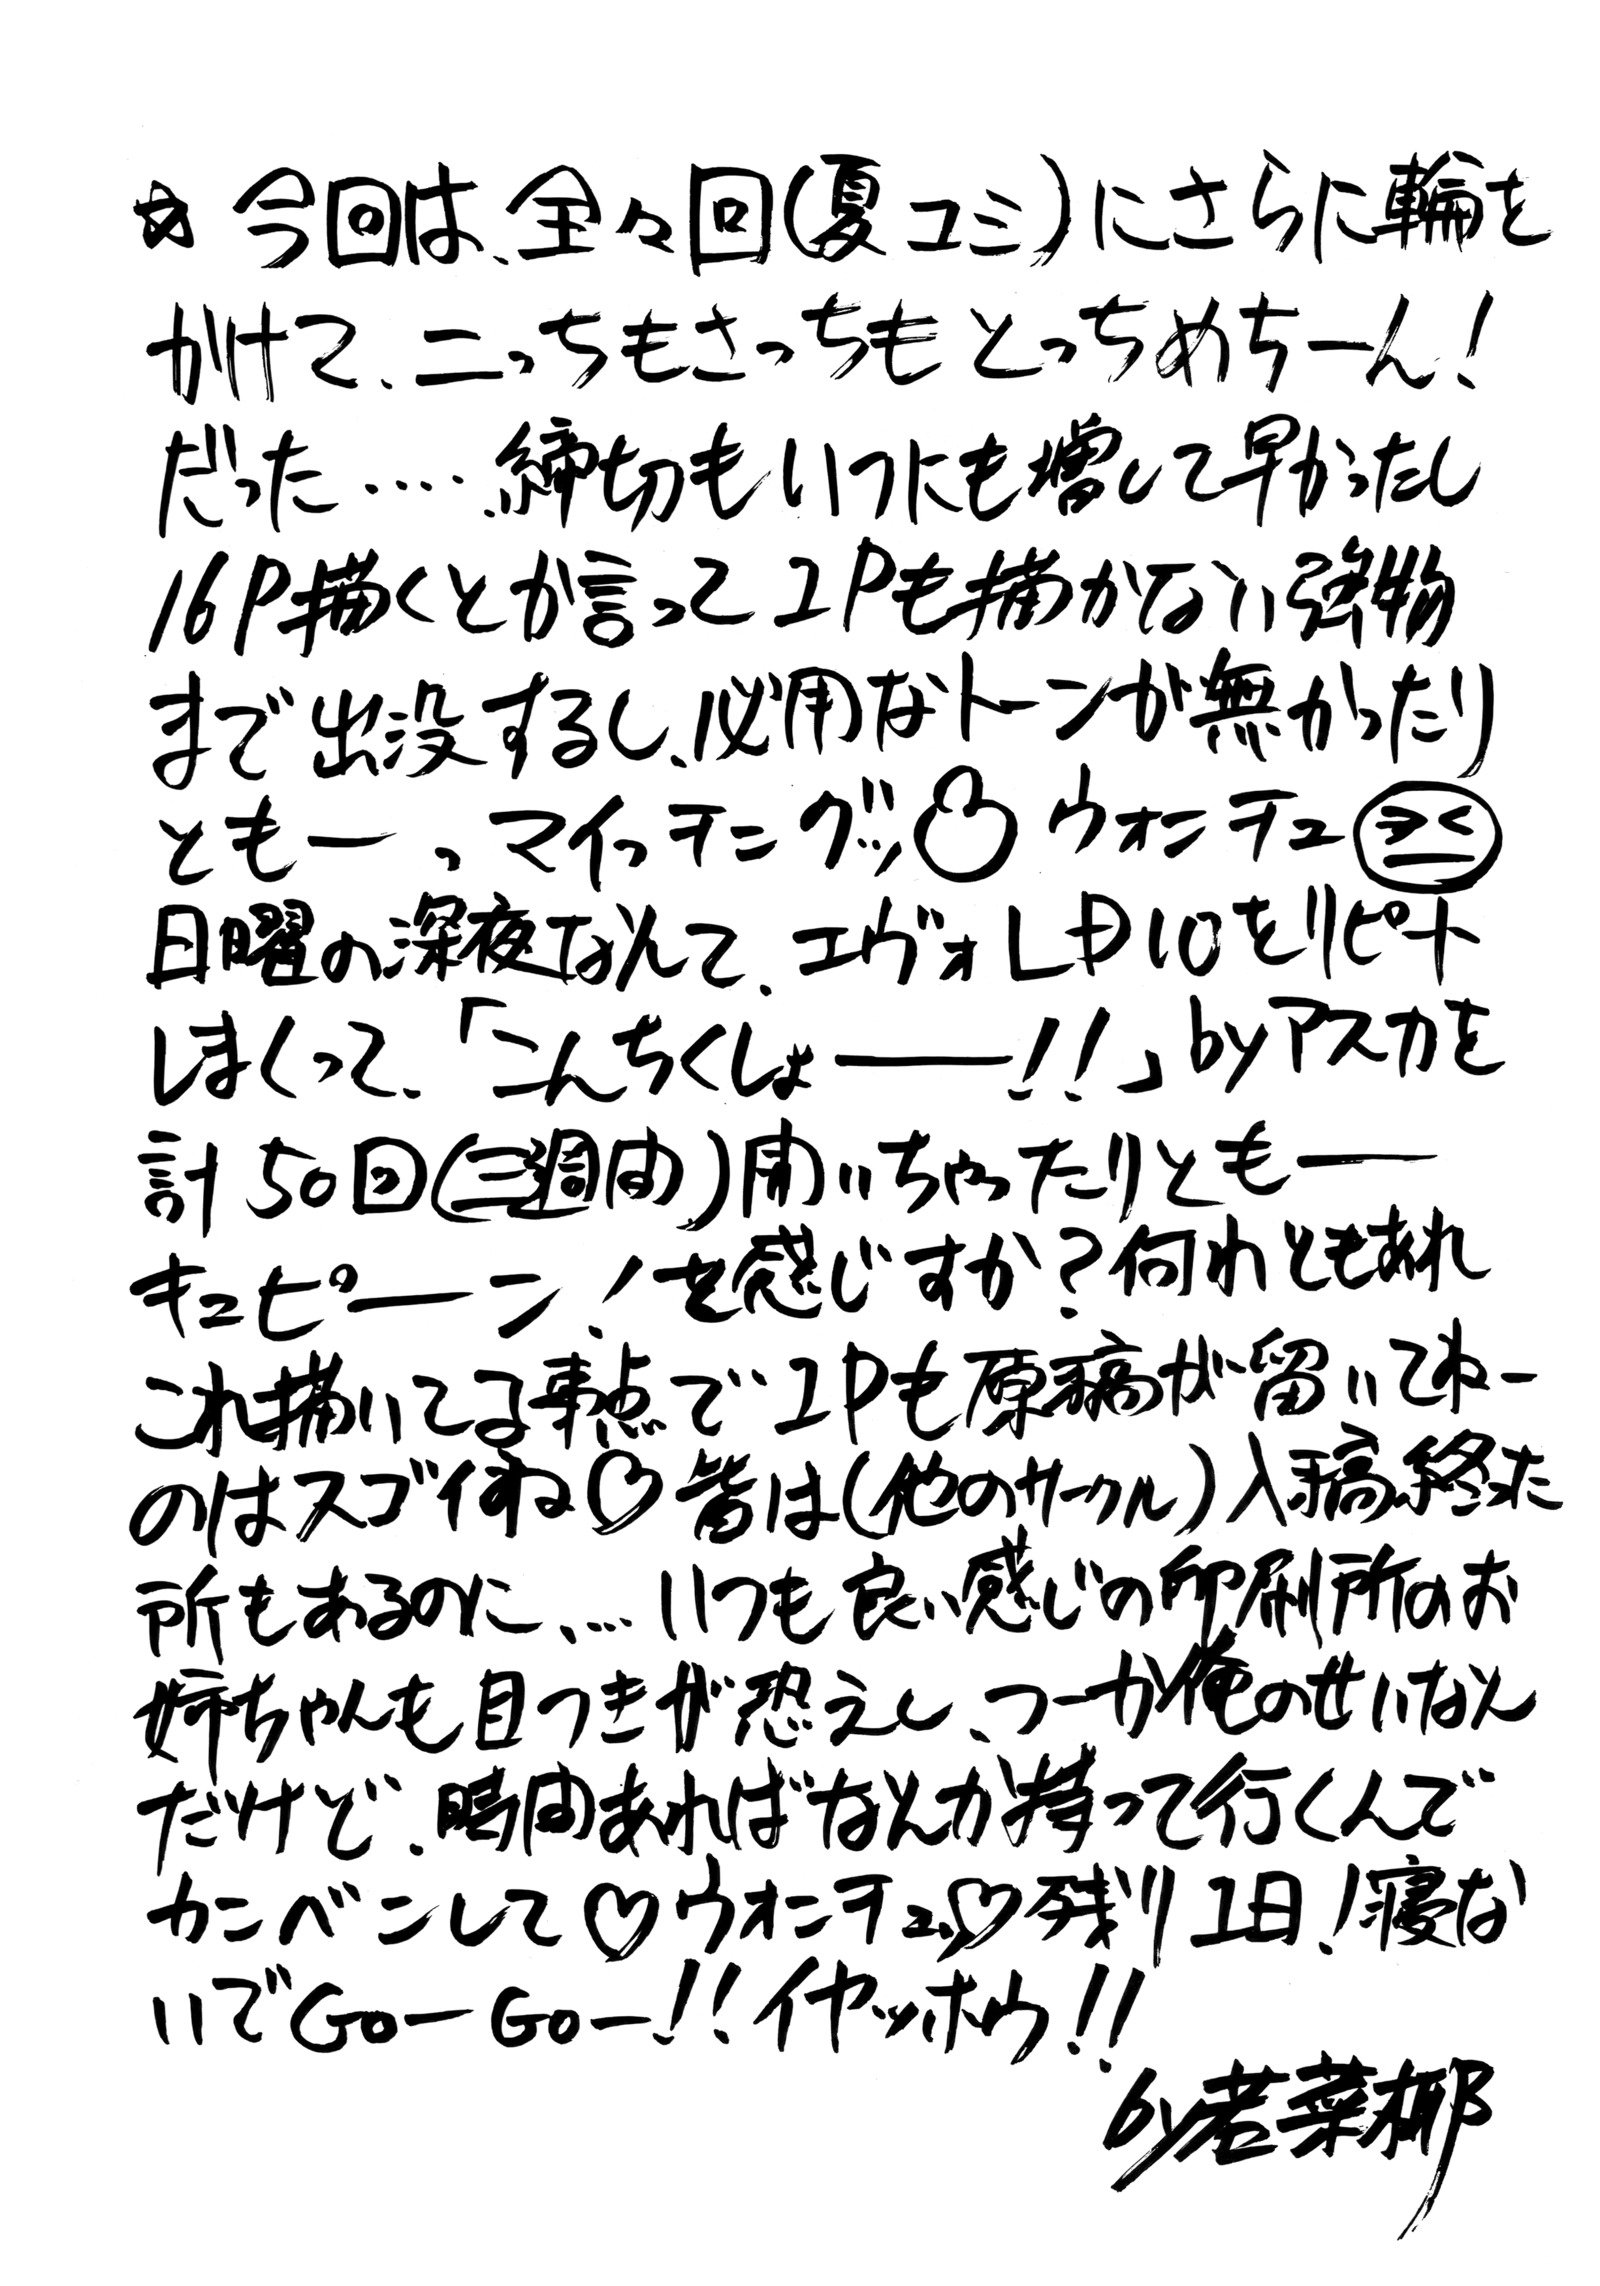 ☆今回は、全々回(夏コミ)にさらに輪を
かけて、ニっちもさっちもとっちめちーん!
だった‥‥.締切もいつにも増して早かったし
16P描くとか言って1Pも描かない強物
まで出没するし、必用なトーンが無かったり
ともーっマイっチングッ ウォンチュ
日曜の深夜なんて、エヴォLD10をリピート
しまくって、「こんちくしょ――!!」byアスカを
計50回(三週間)聞いちゃったりともー
キュピーン!を感じすか?何れともあれ
これ描いてる事点で1Pも原稿が留いてねー
のはスゴイすね♡皆は(他のサークル)入稿終った
所もあるのに、‥‥いつも良い感じの印刷所のお
姉ちゃんも目つきが恐えし、つーか俺のせいなん
だけど、時間あればなんか持って行くんで
カンベンして♡ウォンチュ♡残り1日!寝な
いでGoーGoー!!イヤッホウ!!
by若菜椰